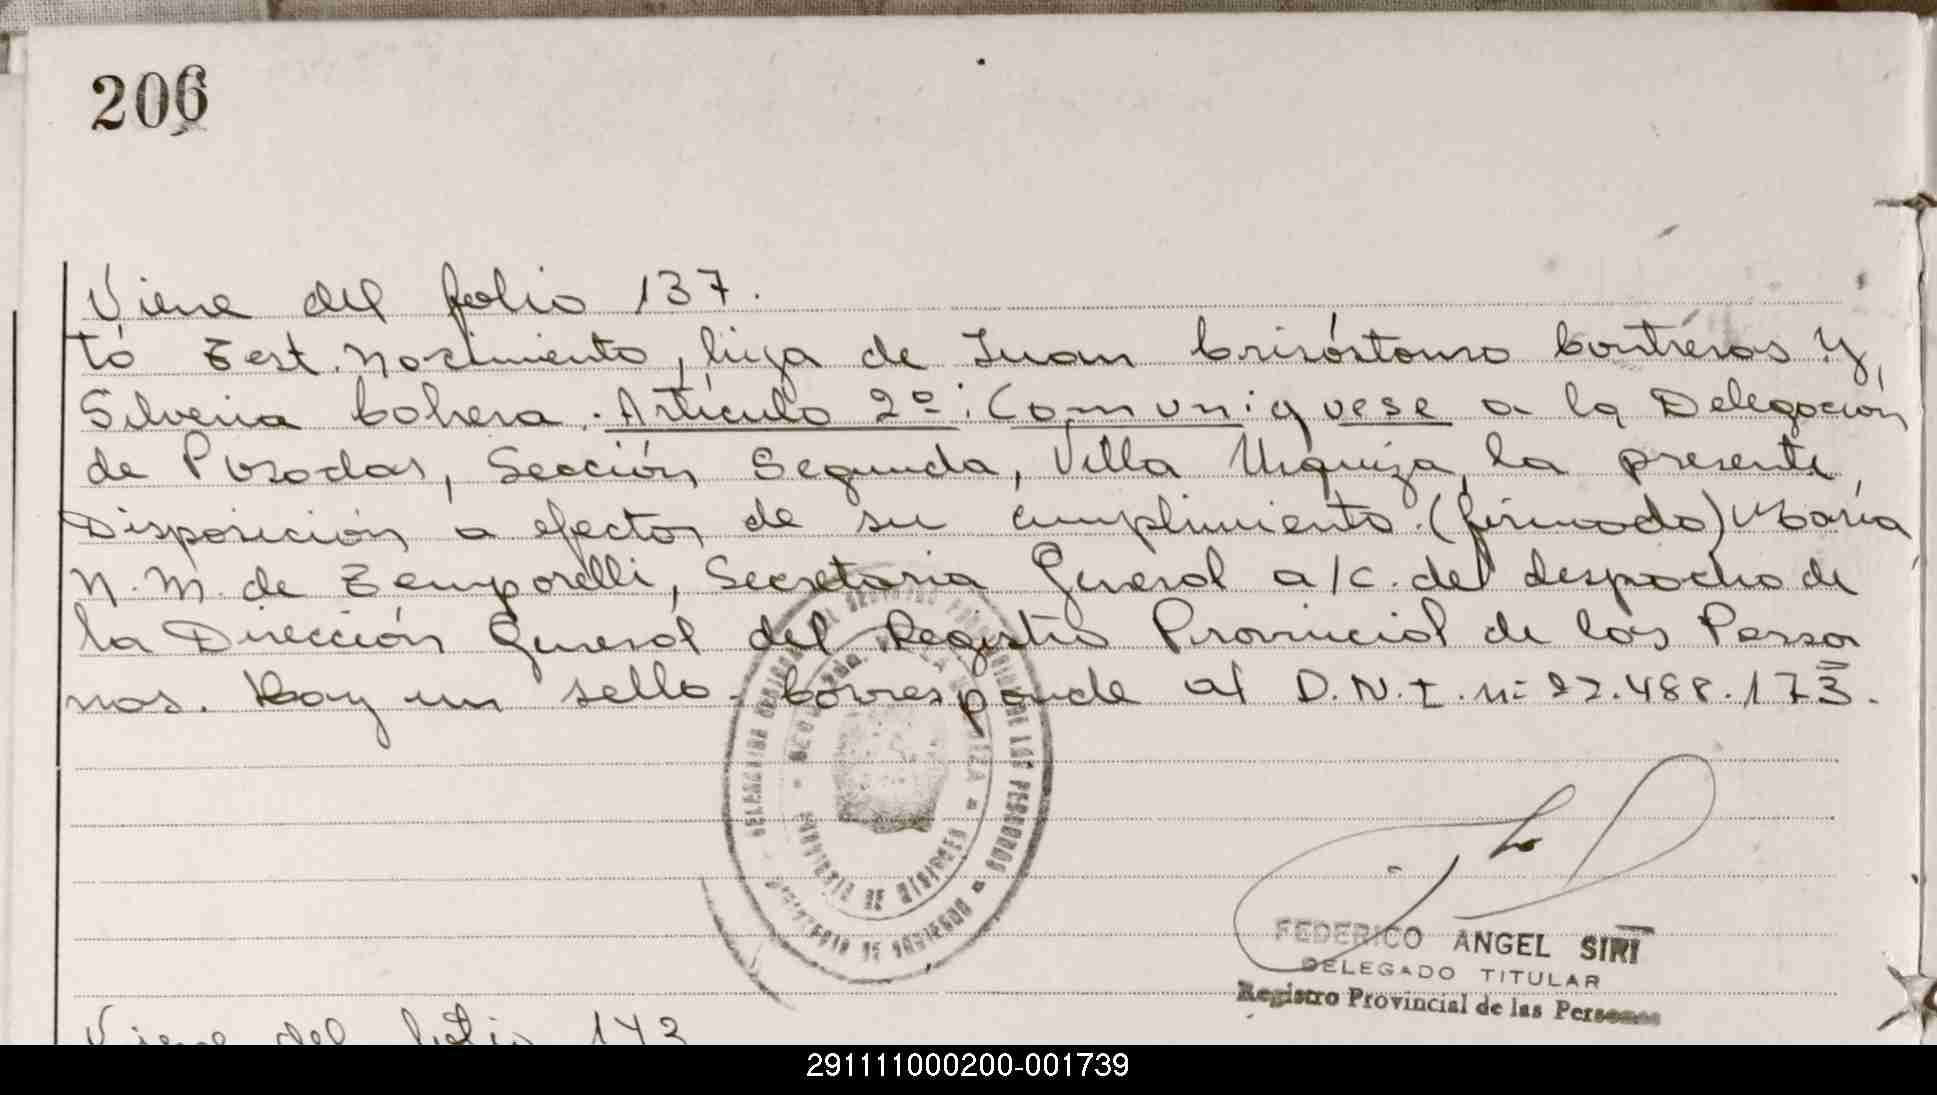 206
Viene del folio 137.
to Test. Nacimiento, hija de Juan Crisóstomo Contreras y
Silveria Cohera. Artículo 2º: Comuniquese a la Delegación
de Posadas, Sección Segunda, Villa Urquiza, la presente
Disposición a efectos de su cumplimiento. (firmado) María
N. M. de Temporelli, Secretaria General a/c. del despacho de
la Dirección General del Registro Provincial de las Perso
nas. Hay un sello. Corresponde al D.N.I. nº 22.488.173.
FEDERICO ANGEL SIRI
DELEGADO TITULAR
Registro Provincial de las Personas
Viene del folio 143
291111000200-001739